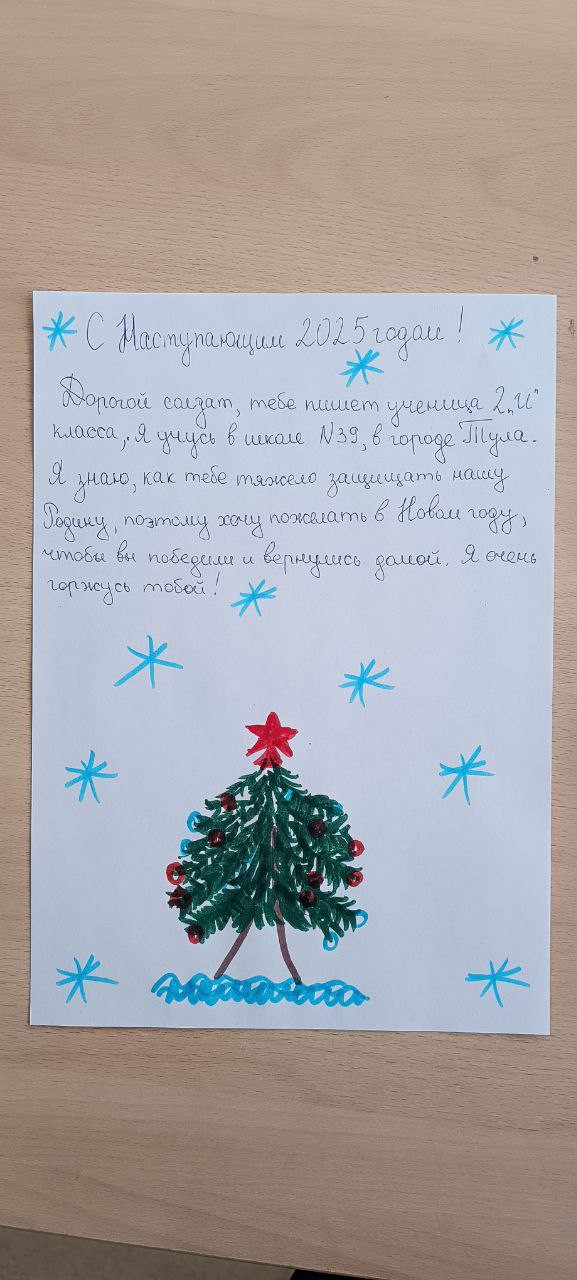 С Наступающим 2025 годом!
Дорогой солдат, тебе пишет ученица 2 „И"
класса, Я учусь в школе N39, в городе Тула.
Я знаю, как тебе тяжело защищать нашу
Родину, поэтому хочу пожелать в Новом году,
чтобы вы победили и вернулись домой. Я очень
горжусь тобой!